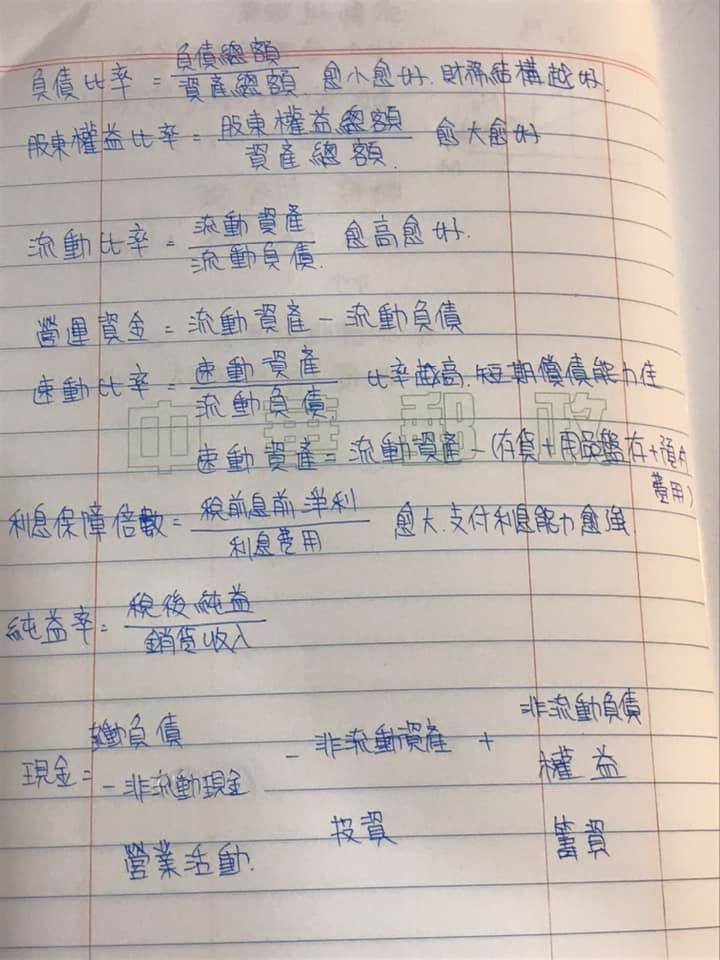 負債比率 = 負債總額 / 資產總額. 愈小愈好. 財務結構越好.
股東權益比率 = 股東權益總額 / 資產總額. 愈大愈好
流動比率 = 流動資產 / 流動負債. 愈高愈好.
營運資金 = 流動資產 - 流動負債
速動比率 = 速動資產 / 流動負債. 比率越高. 短期償債能力佳
中華郵政
速動資產 = 流動資產 - (存貨 + 用品盤存 + 預付
費用)
利息保障倍數 = 稅前息前淨利 / 利息費用 愈大. 支付利息能力愈強
純益率 = 稅後純益 / 銷貨收入
現金 = 動負債 - 非流動現金 - 非流動資產 + 非流動負債 權益
營業活動. 投資 籌資